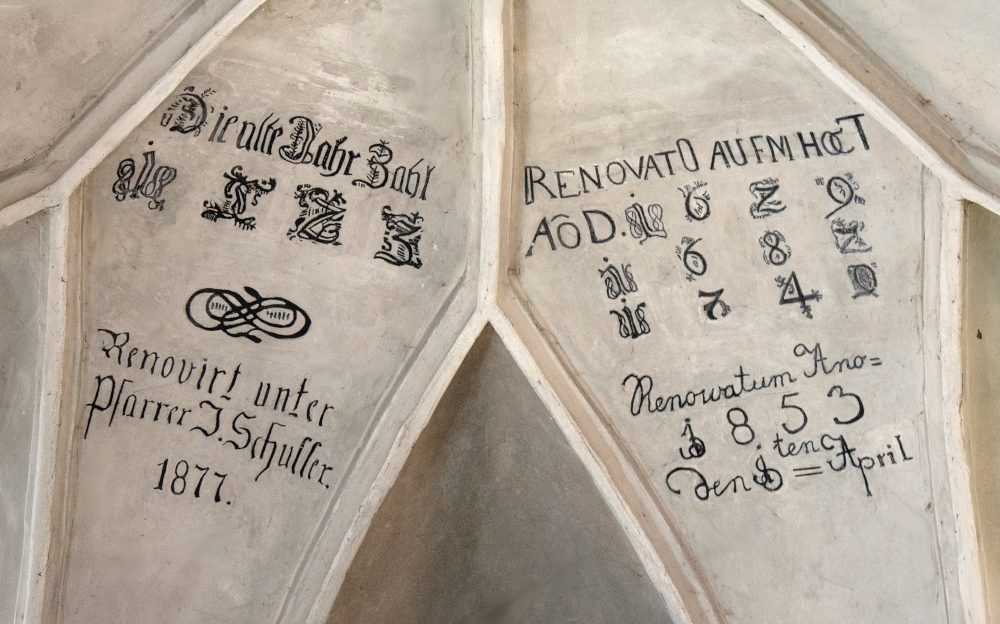 Die alte Jahr Zahl
1
Renovirt unter
Pfarrer J. Schuller.
1877.
RENOVATO AUFM HOET
AÔD. 1 6 2 9
1 6 8 2
1 7 4 0
Renowatum Ano=
1 8 5 3
Den 1 ten = April